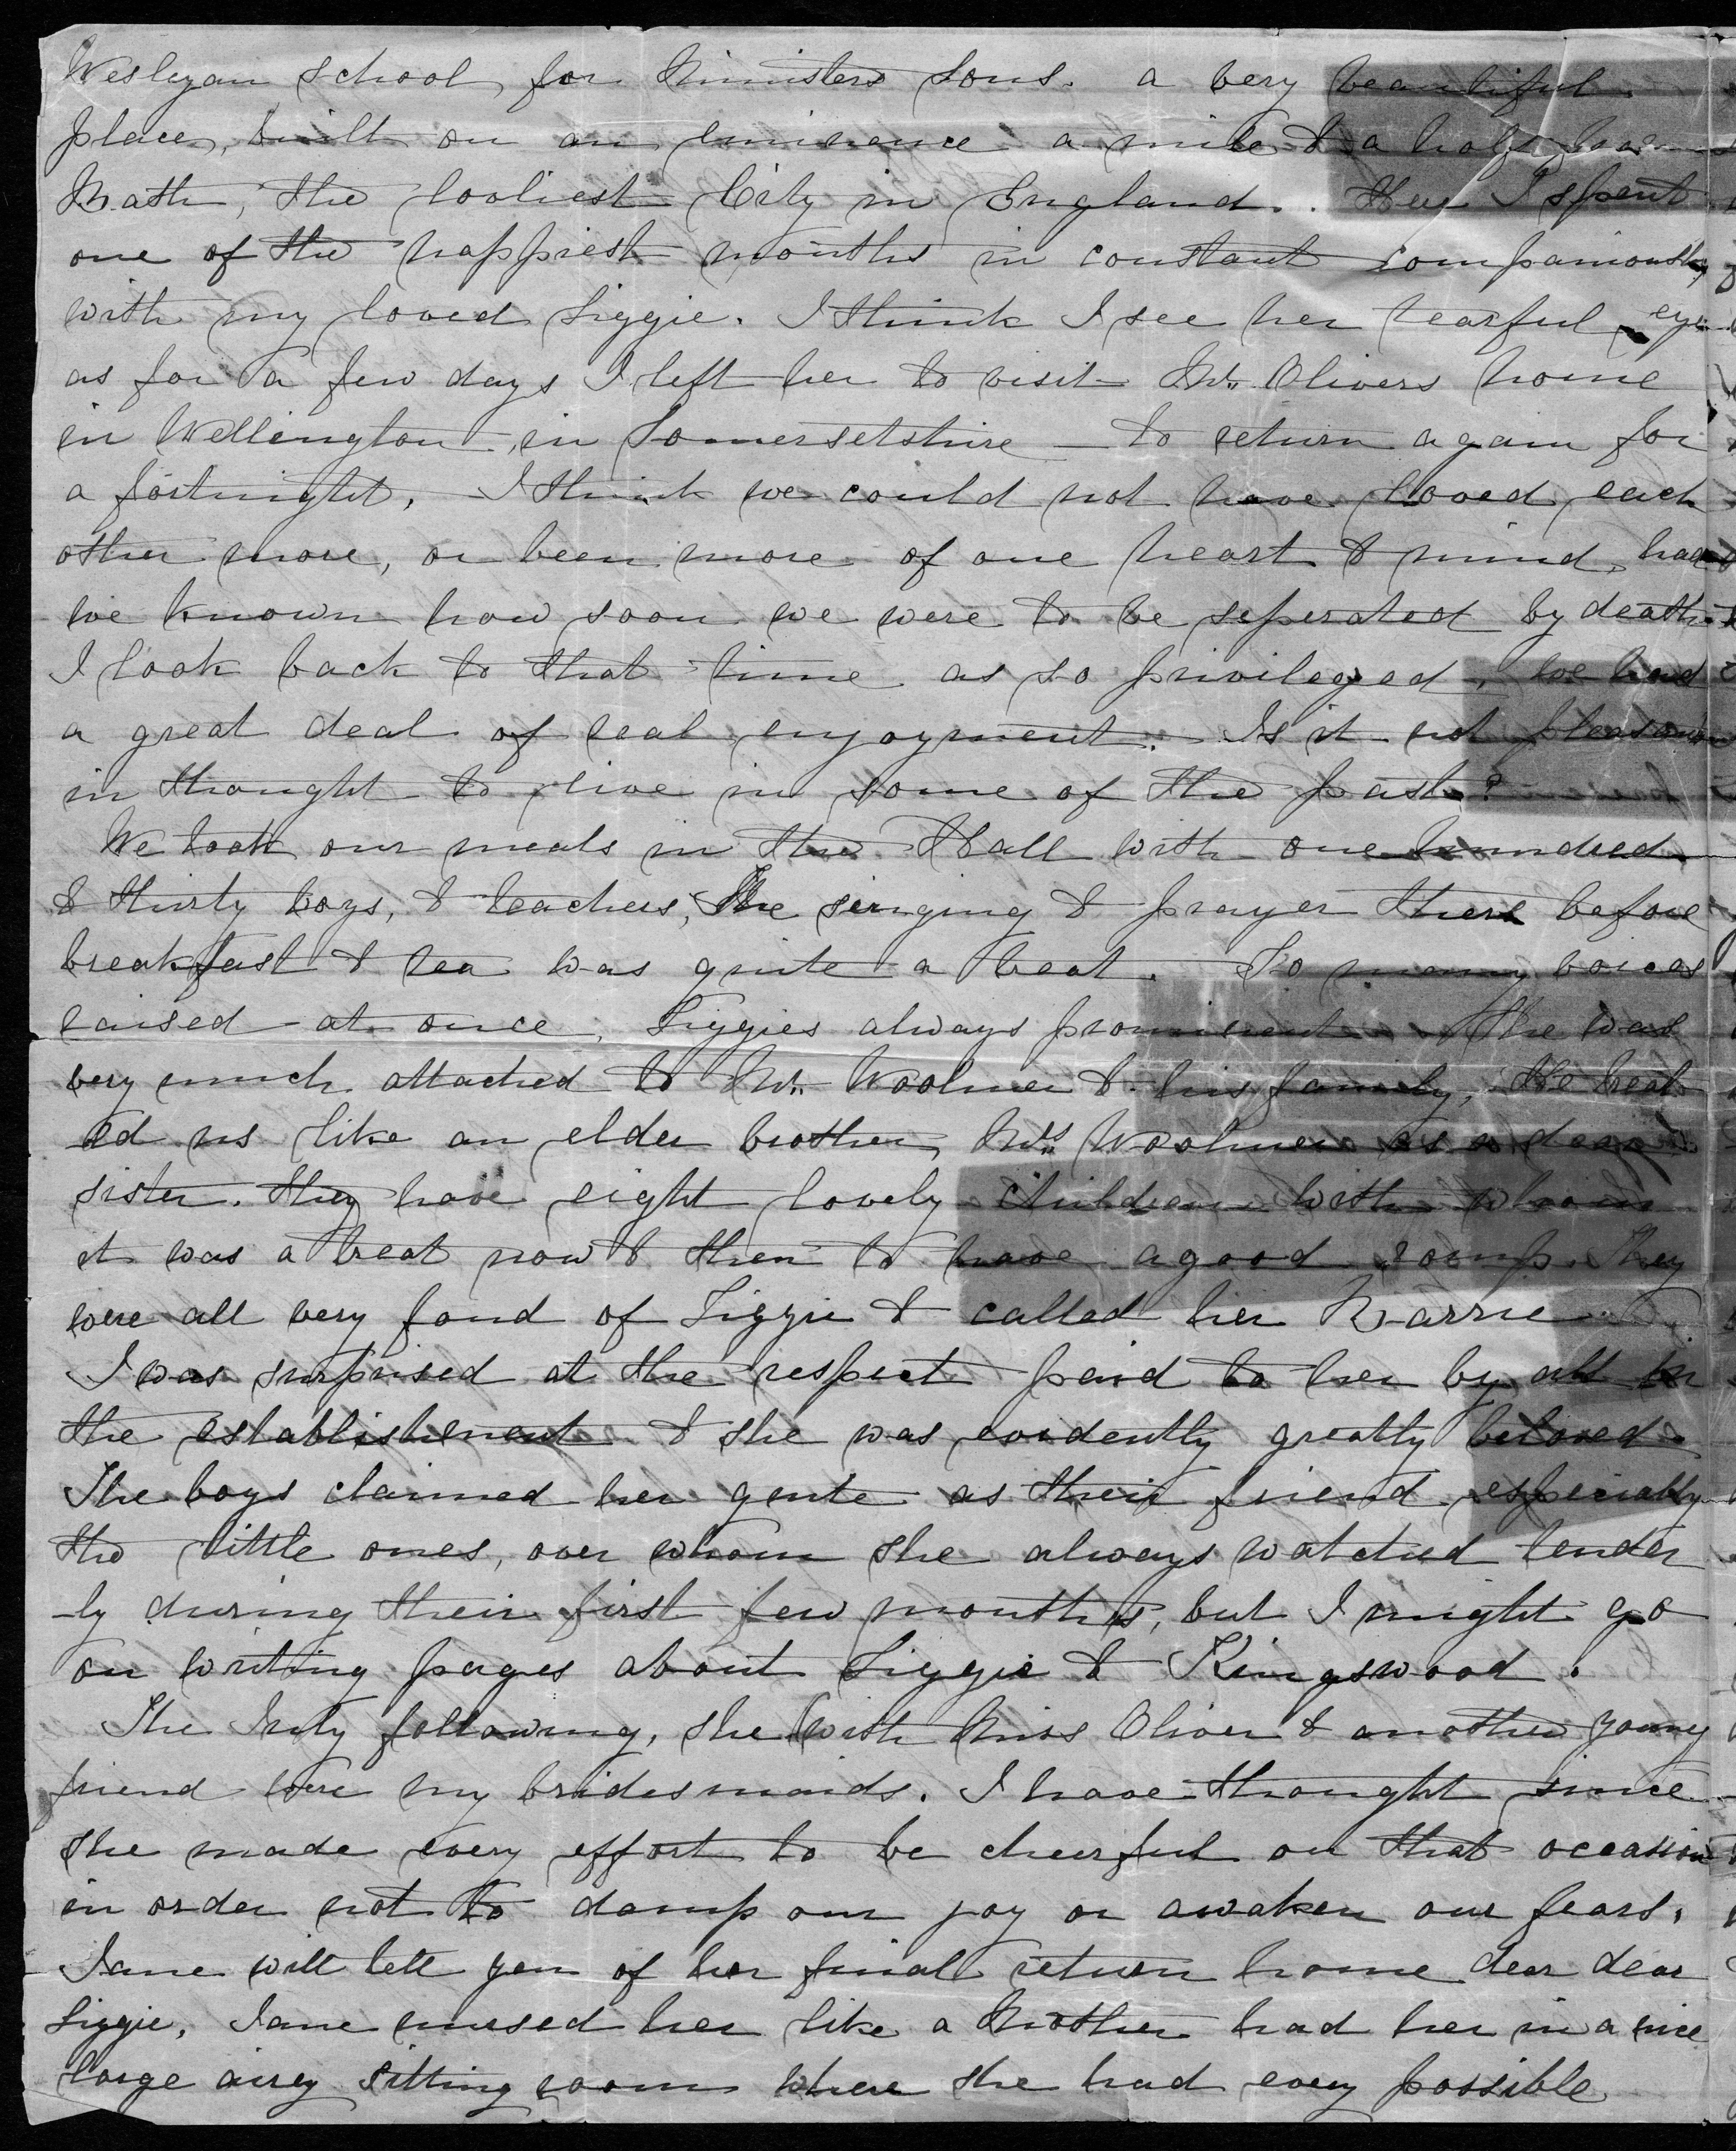 Wesleyan School for Ministers Sons. a very beautiful
place, built on an eminence a mile & a half from
Bath, the loveliest City in England. Here I spent
one of the happiest months in constant companionship
with my loved Lizzie. I think I see her tearful eyes
as for a few days I left her to visit Mr. Olivers home
in Wellington, in Somersetshire — to return again for
a fortnight. I think we could not have loved each
other more, or been more of one heart & mind, had
we known how soon we were to be seperated by death.
I look back to that time as so privileged, we had
a great deal of real enjoyment. Is it not pleasant
in thought to live in some of the past?
We took our meals in the Hall with one hundred
& thirty boys, & teachers, The singing & prayer there before
breakfast & tea was quite a treat. So many voices
raised at once, Lizzies always prominent. She was
very much attached to Mr. Woolmer & his family, He treat
-ed us like an elder brother, Mrs. Woolmer as a dear
sister. they have eight lovely children with whom
it was a treat now & then to have a good romp. They
were all very fond of Lizzie & called her Barrie
I was surprised at the respect paid to her by all in
the establishment & she was evidently greatly beloved.
The boys claimed her quite as their friend especially
the little ones, over whom she always watched tender
-ly during their first few months, but I might go
on writing pages about Lizzie & Kingswood.
The July following, she with Miss Oliver & another young
friend were my bridesmaids. I have thought since
she made every effort to be cheerful on that occasion
in order not to damp our joy or awaken our fears.
Jane will tell you of her final return home dear dear
Lizzie, Jane nursed her like a Mother had her in a nice
large airey sitting room where she had every possible